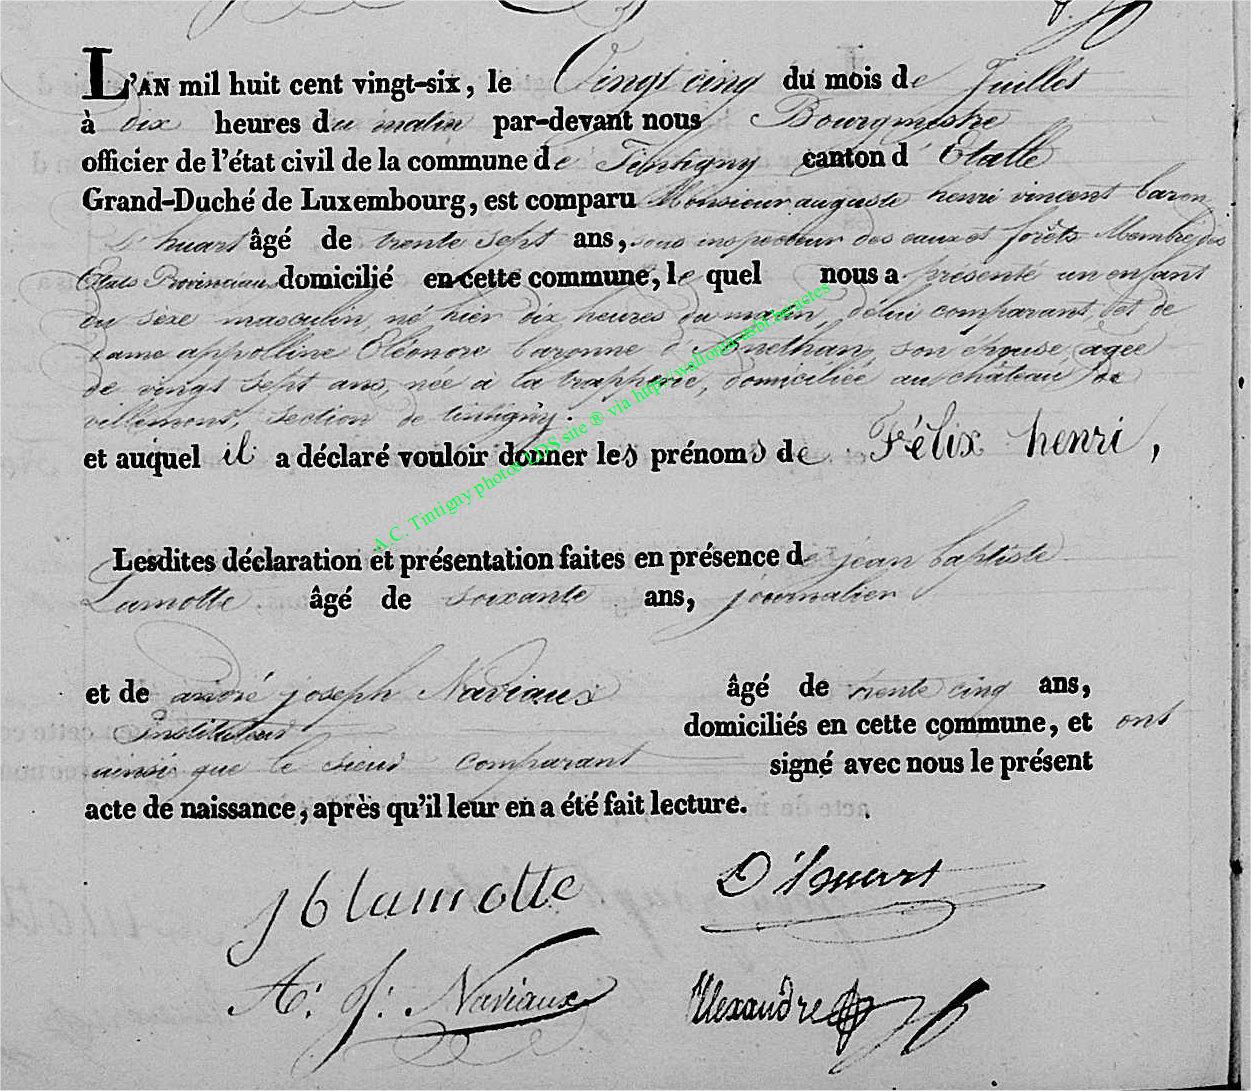 L'AN mil huit cent vingt-six, le Vingt cinq du mois de Juillet
à dix heures du matin par-devant nous Bourgmestre
officier de l'état civil de la commune de Tintigny canton d' Etalle
Grand-Duché de Luxembourg, est comparu Monsieur auguste henri vincent baron
D'huart âgé de trente sept ans, sous inspecteur des eaux et forêts Membre des
Etats Provinciaux domicilié en cette commune, le quel nous a présenté un enfant
du sexe masculin, né hier dix heures du matin, de lui comparant, et de
dame appolline Eléonore baronne d'Anethan, son epouse, agée
de vingt sept ans, née à la trapperie, domiciliée au château de
villemont, section de tintigny.
et auquel il a déclaré vouloir donner les prénoms de Félix henri,
Lesdites déclaration et présentation faites en présence de jean baptiste
Lamotte âgé de soixante ans, journalier
et de andré joseph Naviaux âgé de trente cinq ans,
instituteur domiciliés en cette commune, et ont
ainsi que le sieur comparant signé avec nous le présent
acte de naissance, après qu'il leur en a été fait lecture.
J b lamotte D'huart
A: J: Naviaux Alexandre
A.C. Tintigny photos LDS site ® via http://wallonia-asbl.be/actes